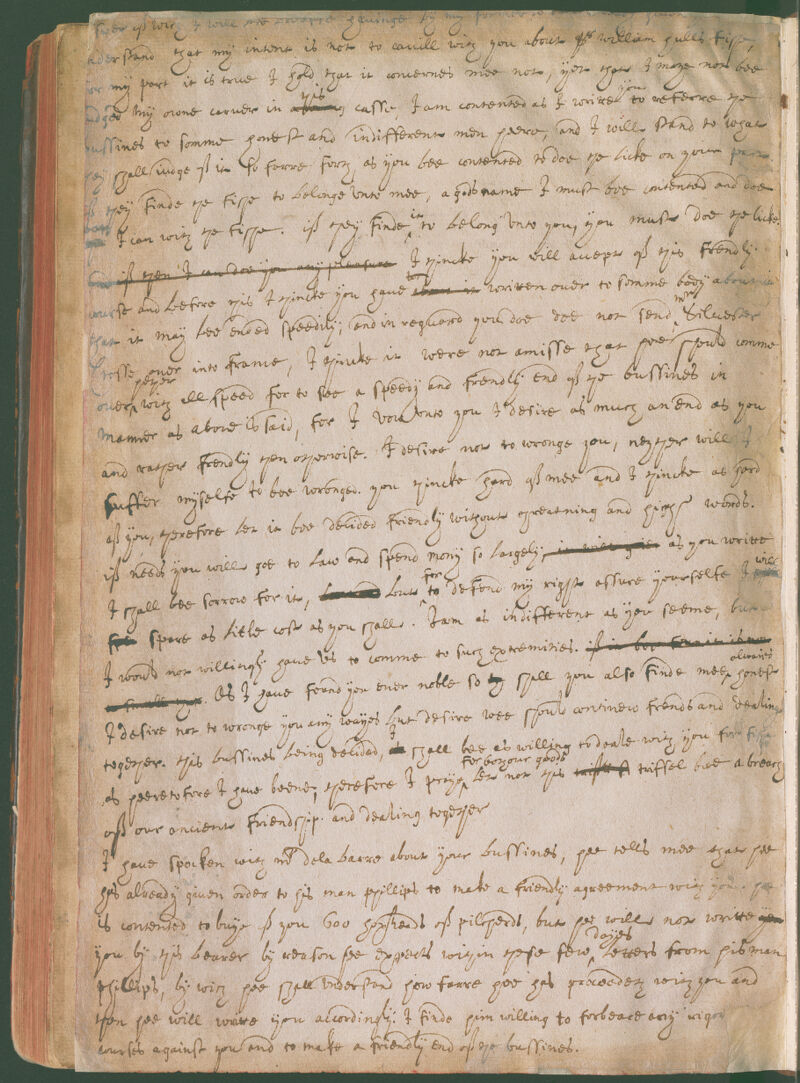 over iff witz I will
understand that my intent is not to cavill with you about William Hulls fisse,
for my part it is true I hold that it concernes mee not, yet that I maye not bee
iudged my owne carver in this casse I am contented as I writte you to referre the
bussines to somme honest and indifferent men heere, and I will stand to what
they shall iudge off it so farre forth as you bee contented to doe the licke on your part.
iff they finde the fisse to belonge unto mee, a gods name I must bee contented and doe
I can with the fisse. iff they finde it to belong unto you, you must doe the licke.
iff then I can doe you any pleasure I thincke you will accept off this frendly
course and beefore this I thincke you have written over to somme body about it
that it may bee ended speedily, and in reguard you doe doe not send mr Silvester
Crosse over into france, I thincke it were not amisse that hee should comme
over hether with all speed for to see a speedy and frendly end off the bussines in
manner as above is said, for I vow unto you I desire as much an end as you
and rather frendly then otherwise. I desire not to wronge you, neyther will I
suffer myselfe to bee wronged. you thincke hard off mee and I thincke as hard
off you, therefore let it bee decided friendly without threatning and high words.
iff needs you will goe to law and spend mony so largely, as you writte
I shall bee sorrow for it, but for to defend my right assure yourselfe I will
spare as litle cost as you shall. I am as indifferent as you seeme, but
I would not willingly have us to comme to such extremities.
As I have found you ever noble so shall you also finde mee alwaies honest
I desire not to wronge you any wayes but desire wee should continew frends and dealing
together. this bussines being decided, I shall bee as willing to deale with you for fish
as heeretofore I have beene, therefore I praye for boyour goods let not this triffel bee a breach
off our ancient friendship. and dealing together
I have spoken with mr dela barre about your bussines, hee tells mee that hee
has already given order to his man Phillips to make a friendly agreement with you. hee
is contented to buye iff you 600 hogsheads off pilcherds, but hee will not writte
you by this bearer by reason hee expects within these few dayes letters from his man
Phillips, by wich hee shall understand how farre hee has proceeded with you and
then hee will write you accordingly. I finde him willing to forbeare any rigor
courses against you and to make a friendly end off the bussines.